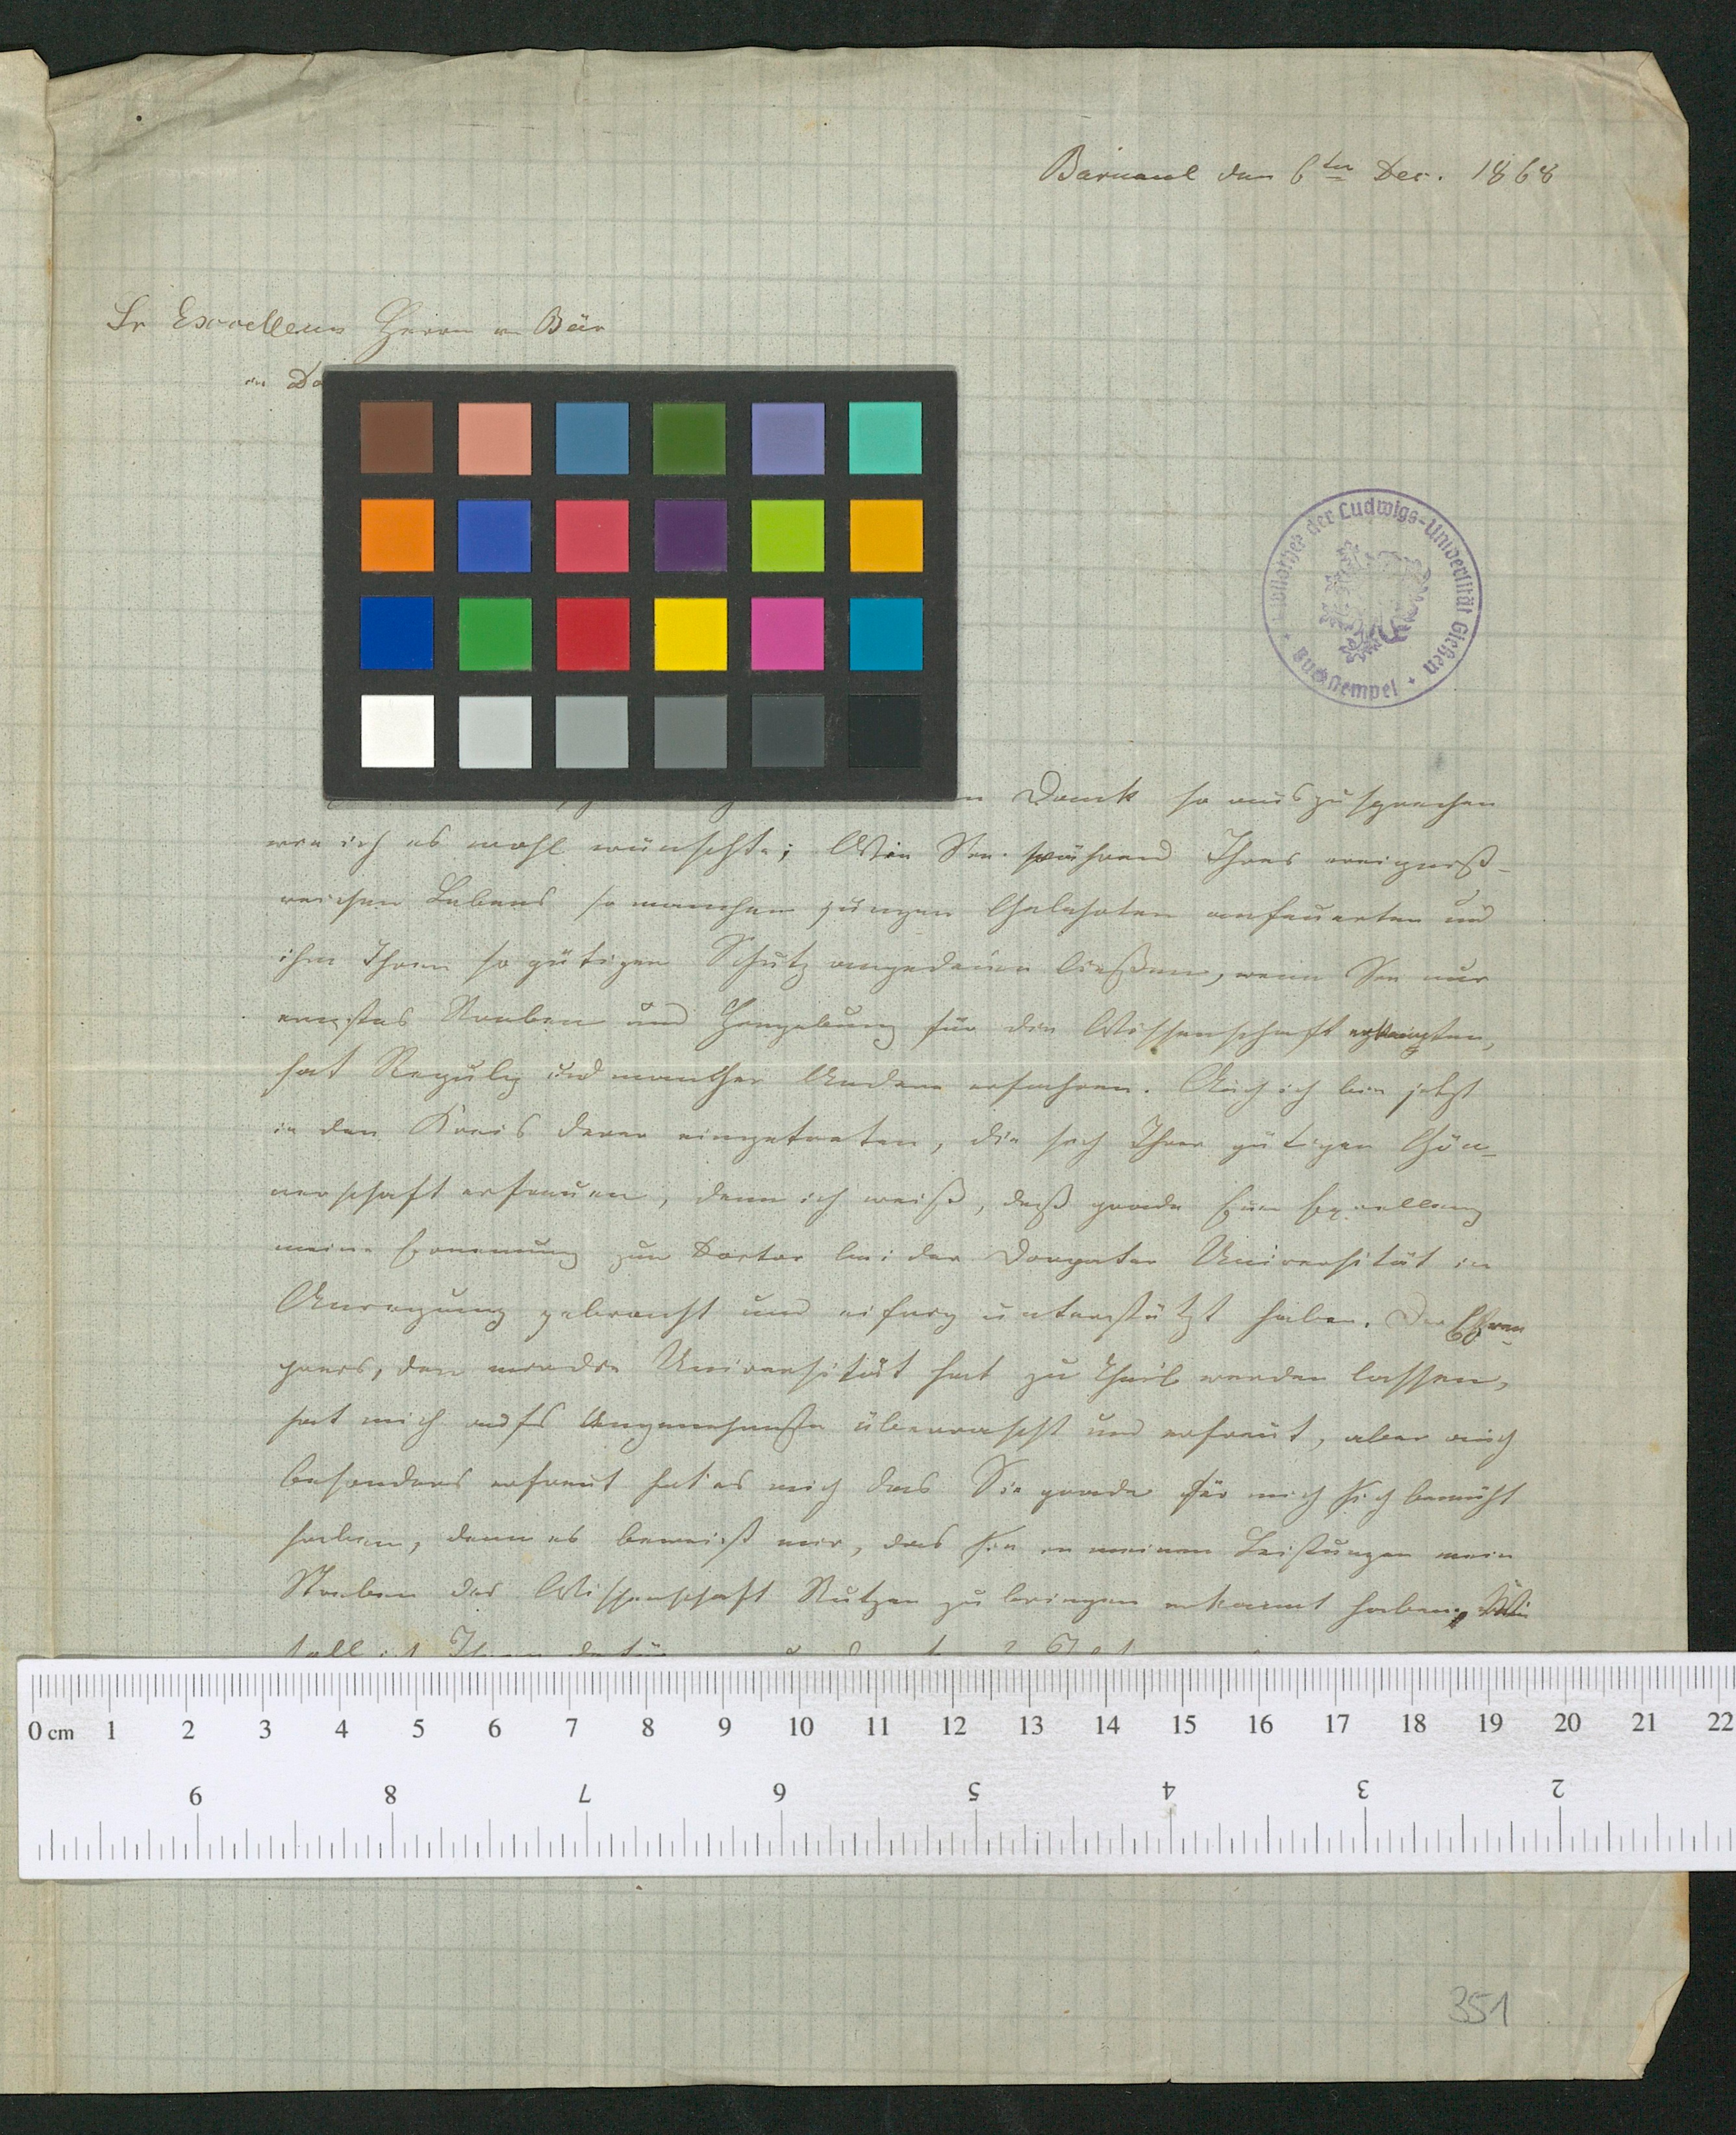 Barnaul den 6ten Dec. 1868
Sr Excellenz Herrn v Bär
in Do
Bibliothek der Ludwigs-Universität Gießen
Buchstempel
n Dank so auszusprechen
wie ich es wohl wünschte; Wie Sie während Ihres ereigniß-
reichen Lebens so manchen jungen Gelehrten anfeuerten und
ihm Ihren so gütigen Schutz angedeien ließen, wenn Sie nur
ernstes Streben und Hingebung für die Wissenschaft erkannten,
hat Reguly und mancher Andere erfahren. Auch ich bin jetzt
in den Kreis derer eingetreten, die sich Ihrer gütigen Gön-
nerschaft erfreuen, denn ich weiß, daß grade Eure Excellenz
meine Ernennung zum Doctor bei der Dorpater Universität in
Anregung gebracht und eifrig unterstützt haben. Der Ehren-
preis, den mir die Universität hat zu Theil werden lassen,
hat mich aufs Angenehmste überrascht und erfreut, aber auch
besonders erfreut hat es mich das Sie grade für mich sich bemüht
haben, denn es beweist mir, das Sie in meinen Leistungen mein
Streben der Wissenschaft Nutzen zu bringen erkannt haben. Wie
soll ich Ihnen dafür
0 cm 1 2 3 4 5 6 7 8 9 10 11 12 13 14 15 16 17 18 19 20 21 22
9 8 7 6 5 4 3 2
351